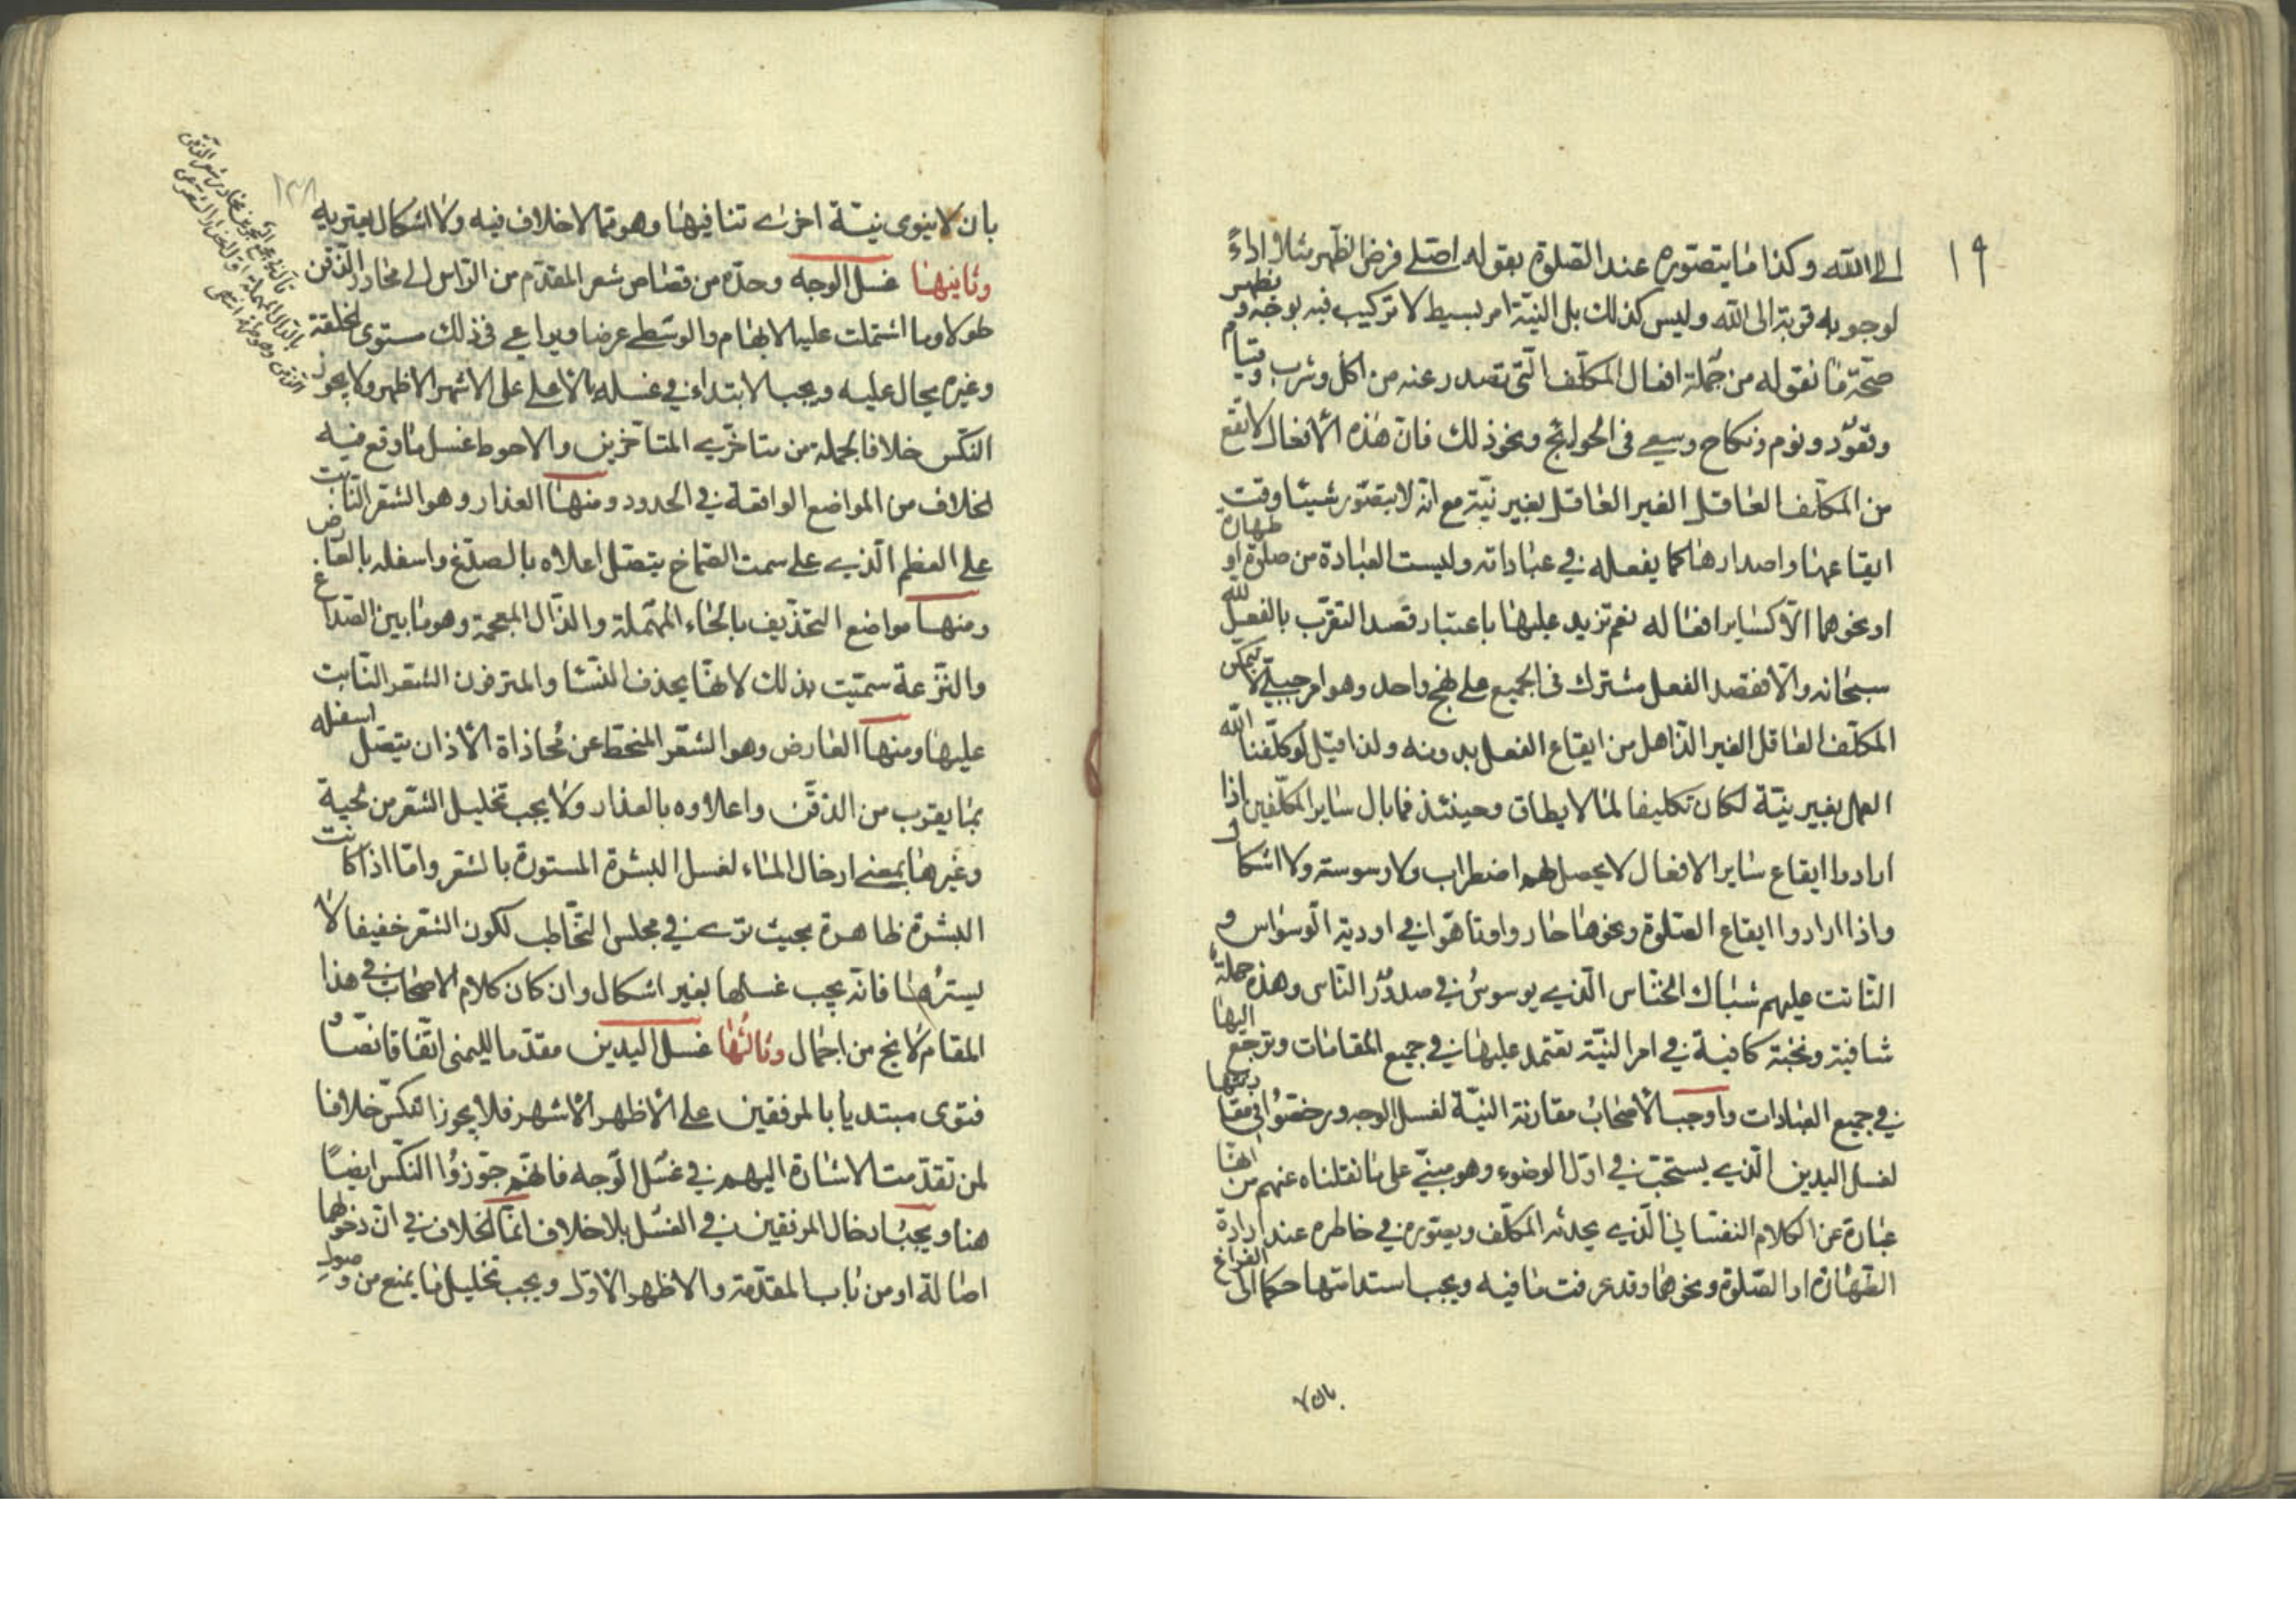 ١٩
الى الله وكذا ما يتصوره عند الصلوة بقوله اصلى فرض الظهر مثلا اداءً
لوجوبه قربة الى الله وليس كذلك بل النيّة امر بسيط لا تركيب فيه بوجه و يظهر
صحّة ما نقوله من جملة افعال المكلّف التى تصدر عنه من اكل وشرب وقيام
وقعود ونوم ونكاح وسعى فى الحوائج ونحو ذلك فانّ هذه الافعال لا تقع
من المكلّف العاقل الغير الغافل بغير نيّة مع انه لا يتصوّر شيئا وقت
ايقاعها واصدارها كما يفعله في عباداته وليست العبادة من صلوة او طهارة
او نحوهما الّا كساير افعاله نعم تزيد عليها باعتبار قصد التقرّب بالفعل لله
سبحانه والّا فقصد الفعل مشترك فى الجميع على نهج واحد وهو امر جبلّي لا يمكن
المكلّف العاقل الغير الذاهل من ايقاع الفعل بدونه ولذا قيل لو كلّفنا الله
العمل بغير نيّة لكان تكليفا لما لا يطاق وحينئذ فما بال ساير المكلّفين اذا
ارادوا ايقاع ساير الافعال لا يحصل لهم اضطراب ولا وسوسة ولا اشكال
واذا ارادوا ايقاع الصلوة ونحوها حاروا وتاهوا في اودية الوسواس و
التانت عليهم شباك الخنّاس الّذي يوسوس في صدور النّاس وهذه جملة
شافية ونخبة كافية في امر النيّة تعتمد عليها في جميع المقامات وترجع اليها
في جميع العبادات واوجب الاصحاب مقارنة النيّة لغسل الوجه ورخّصوا في مقارنتها
لغسل اليدين الّذي يستحبّ في اوّل الوضوء وهو مبنيّ على ما نقلناه عنهم من انّها
عبارة عن الكلام النفساني الّذي يحدثه المكلّف ويصوّره في خاطره عند ارادة
الطهارة او الصلوة ونحوهما وقد عرفت ما فيه ويجب استدامتها حكما الى الفراغ
بان لا
١٣٨
بان لا ينوى نيّة اخرى تنافيها وهو ممّا لا خلاف فيه ولا اشكال يعتريه
وثانيها غسل الوجه وحدّه من قصاص شعر المقدّم من الرّاس الى محادر الذّقن
طولا وما اشتملت عليه الابهام والوسطى عرضا ويراعى في ذلك مستوى الخلقة
وغيره يحال عليه ويجب الابتداء في غسله بالاعلى على الاشهر الاظهر ولا يجوز
النكس خلافا لجملة من متاخّرى المتاخرين والاحوط غسل ما وقع فيه
الخلاف من المواضع الواقعة في الحدود ومنها العذار وهو الشعر النّابت
على العظم الّذي على سمت الصّماخ يتصل اعلاه بالصدغ واسفله بالعارض
ومنها مواضع التحذيف بالحاء المهملة والذّال المعجمة وهو ما بين الصدغ
والنزعة سميّت بذلك لانها يحذف النسا والمترفون الشعر النّابت
عليها ومنها العارض وهو الشّعر المنحطّ عن محاذاة الاذان يتصل اسفله
بما يقرب من الذقن واعلاوه بالعذار ولا يجب تخليل الشعر من لحية
وغيرها بمعنى ادخال الماء لغسل البشرة المستورة بالشعر وامّا اذا كانت
البشرة ظاهرة بحيث ترى في مجلس التّخاطب لكون الشعر خفيفا لا
يسترها فانه يجب غسلها بغير اشكال وان كان كلام الاصحاب في هذا
المقام لا يخ من اجمال وثالثها غسل اليدين مقدّما لليمنى اتّفاقا نصّا و
فتوى مبتديا بالمرفقين على الاظهر الاشهر فلا يجوز النكس خلافا
لمن تقدّمت الاشارة اليهم في غسل الوجه فانّهم جوّزوا النكس ايضًا
هنا ويجب ادخال المرفقين في الغسل بلا خلاف انما الخلاف في انّ دخولها
اصالة او من باب المقدّمة والاظهر الاوّل ويجب تخليل ما يمنع من وصول